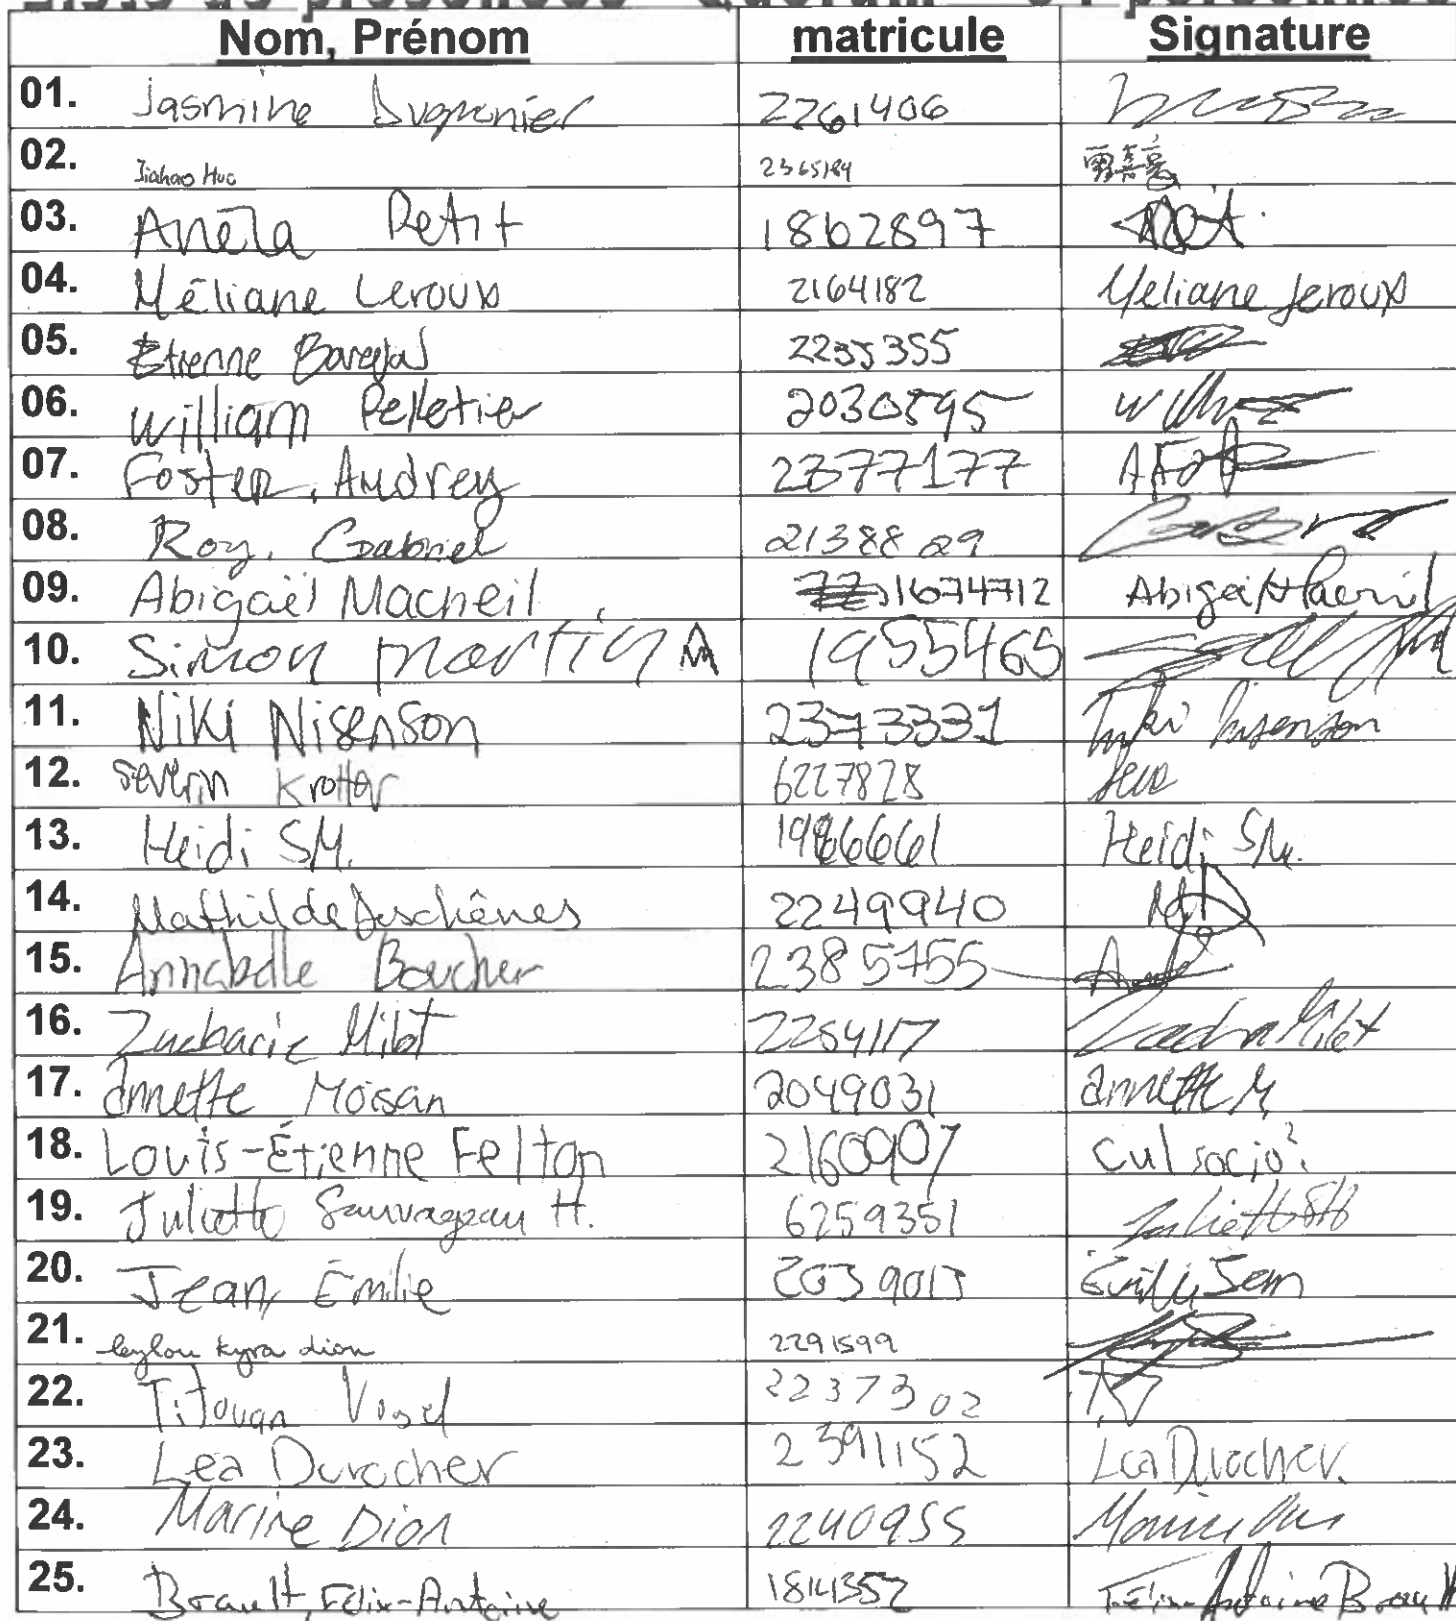 Nom, Prénom matricule Signature
01. Jasmine 2261406
02. Jiahao Huo 2365184
03. Anëla Petit 1862897
04. Méliane Leroux 2164182 Méliane Leroux
05. Etienne 2235355
06. William Pelletier 2030595
07. Foster, Audrey 2377177
08. Roy, Gabriel 2138829
09. Abigaël Macneil 1674712
10. Simon Martin 1955465
11. Niki Nisenson 2373331 Niki Nisenson
12. Severin 6227828
13. Heidi SM. Heidi SM.
14. Mathilde Deschênes 2249940
15. Annabelle Boucher 2385755
16. Zacharie Milot 2254117
17. Annette Moisan 2049031 annette M
18. Louis-Étienne Felton 2160907 Cul socio?
19. Juliette Sauvageau H. 6259351
20. Jean, Émilie Émilie Jean
21. leylou kyra dion 2291599
22. Titouan Vogel 2237302
23. Léa Durocher 2391152 Léa Durocher
24. Marine Dion 2240955 Marine Dion
25. Brault, Félix-Antoine 1814352 Félix-Antoine Brault